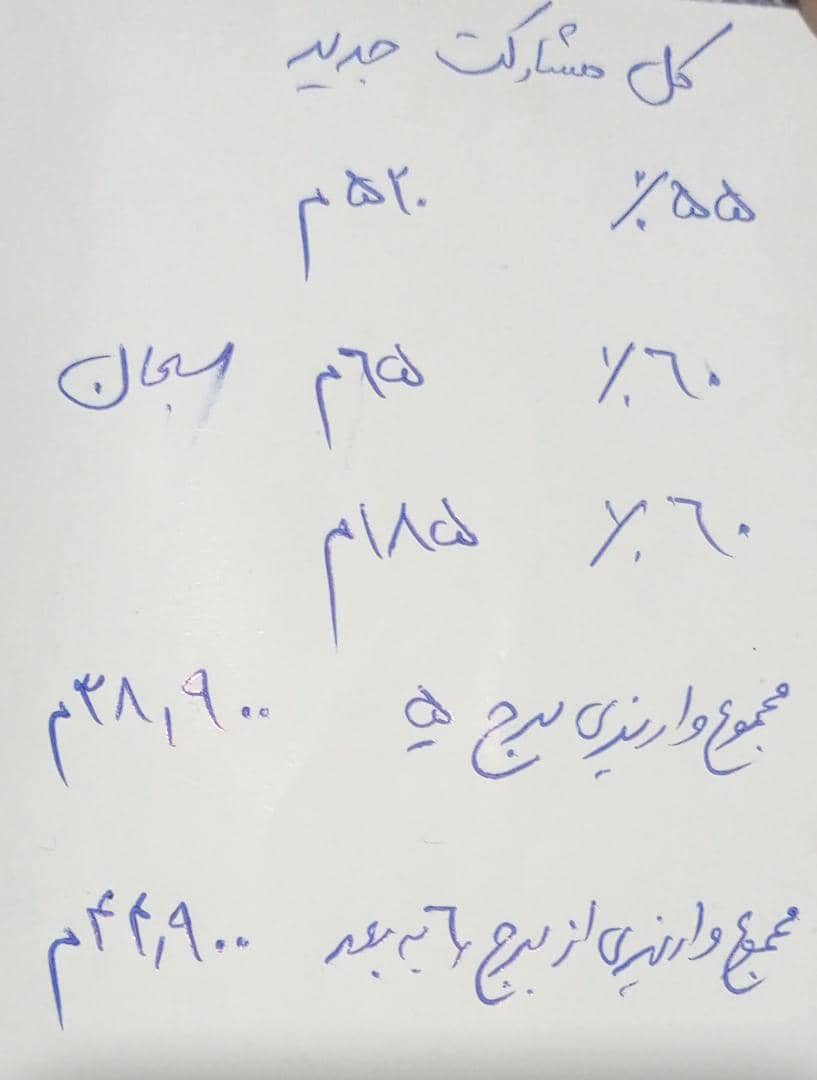 کل مشارکت جدید
٪۵۵ ۵۲۰م
٪۶۰ ۶۵م
٪۶۰ ۱۸۵م
مجموع واریزی برج ۵ ۳۸,۹۰۰م
مجموع واریزی از برج ۶ به بعد ۴۴,۹۰۰م